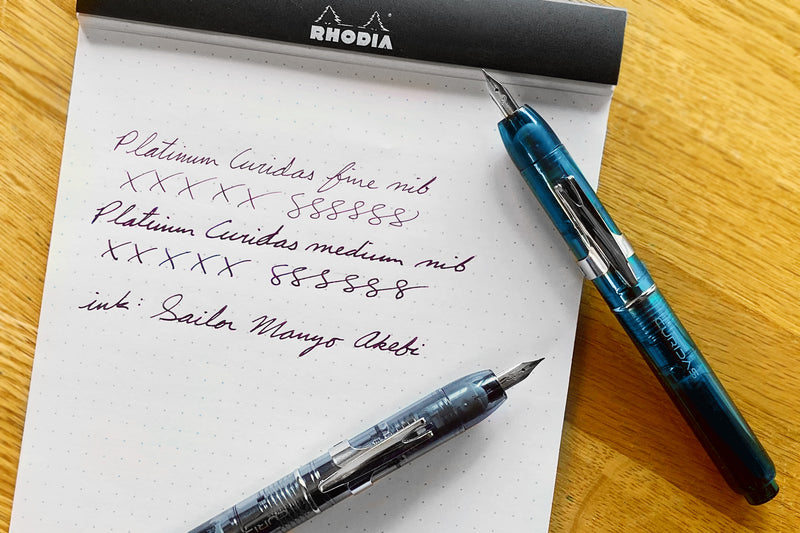 RHODIA
Platinum Curidas fine nib
X X X X X 8888888
Platinum Curidas medium nib
X X X X X 888888
ink: Sailor Manyo Akebi
CURIDAS
CURIDAS